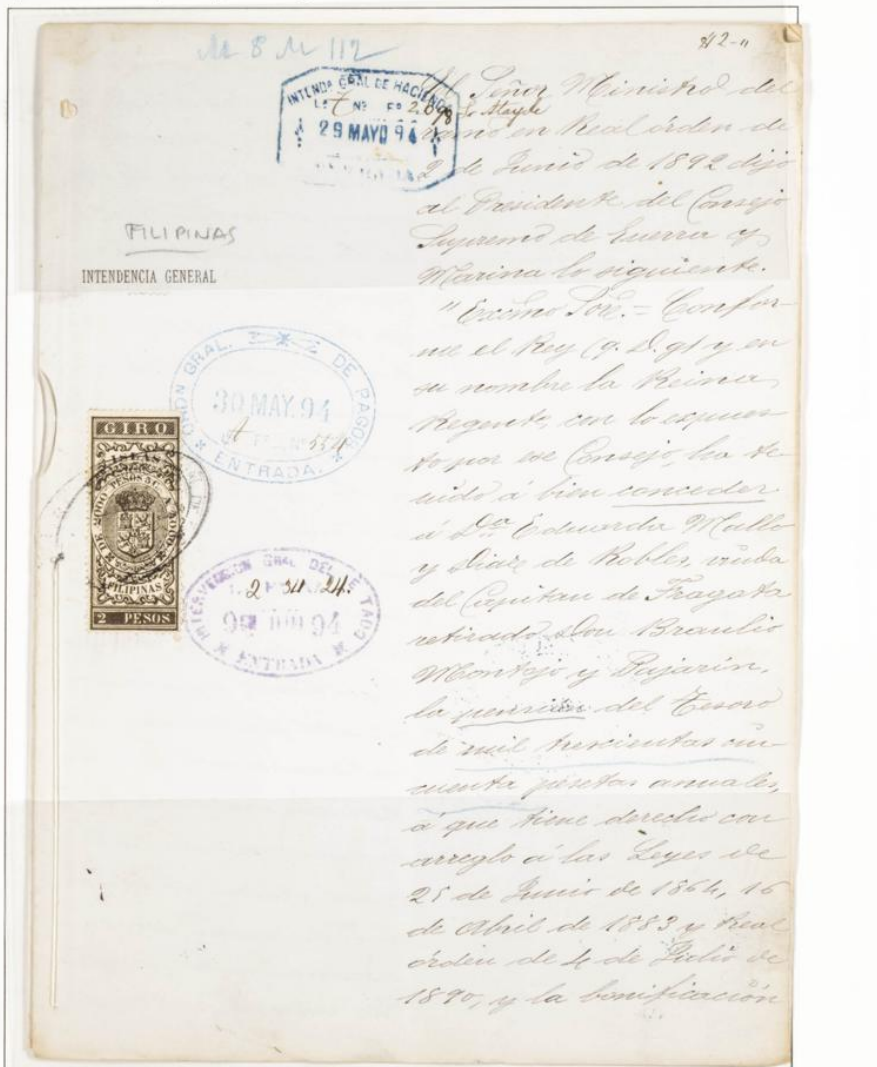 M 8 M 112
812-"
INTENDA GRAL DE HACIENDA
Lo 7 No Fo 2.078
29 MAYO 94
FILIPINAS
INTENDENCIA GENERAL
ORDON GRAL. DE PAGOS
30 MAY. 94
No 554
ENTRADA.
GIRO
ISLAS
FILIPINAS
2 PESOS
INTERVENCION GRAL DEL ESTADO
94
ENTRADA
El Señor Ministro del
ramo en Real órden de
2 de Junio de 1892 dijo
al Presidente del Consejo
Supremo de Guerra y
Marina lo siguiente.
"Excmo Sor. = Confor-
me el Rey (q. D. g) y en
su nombre la Reina
Regente, con lo expues
to por ese Consejo, ha te-
nido á bien conceder
á Da Eduarda Mallo
y Diaz de Robles, viuda
del Capitan de Fragata
retirado, Don Braulio
Montojo y Pajarin,
la pension del Tesoro
de mil trescientas cin-
cuenta pesetas anuales,
á que tiene derecho con
arreglo á las Leyes de
25 de Junio de 1864, 16
de Abril de 1883 y Real
órden de 4 de Julio de
1890, y la bonificación